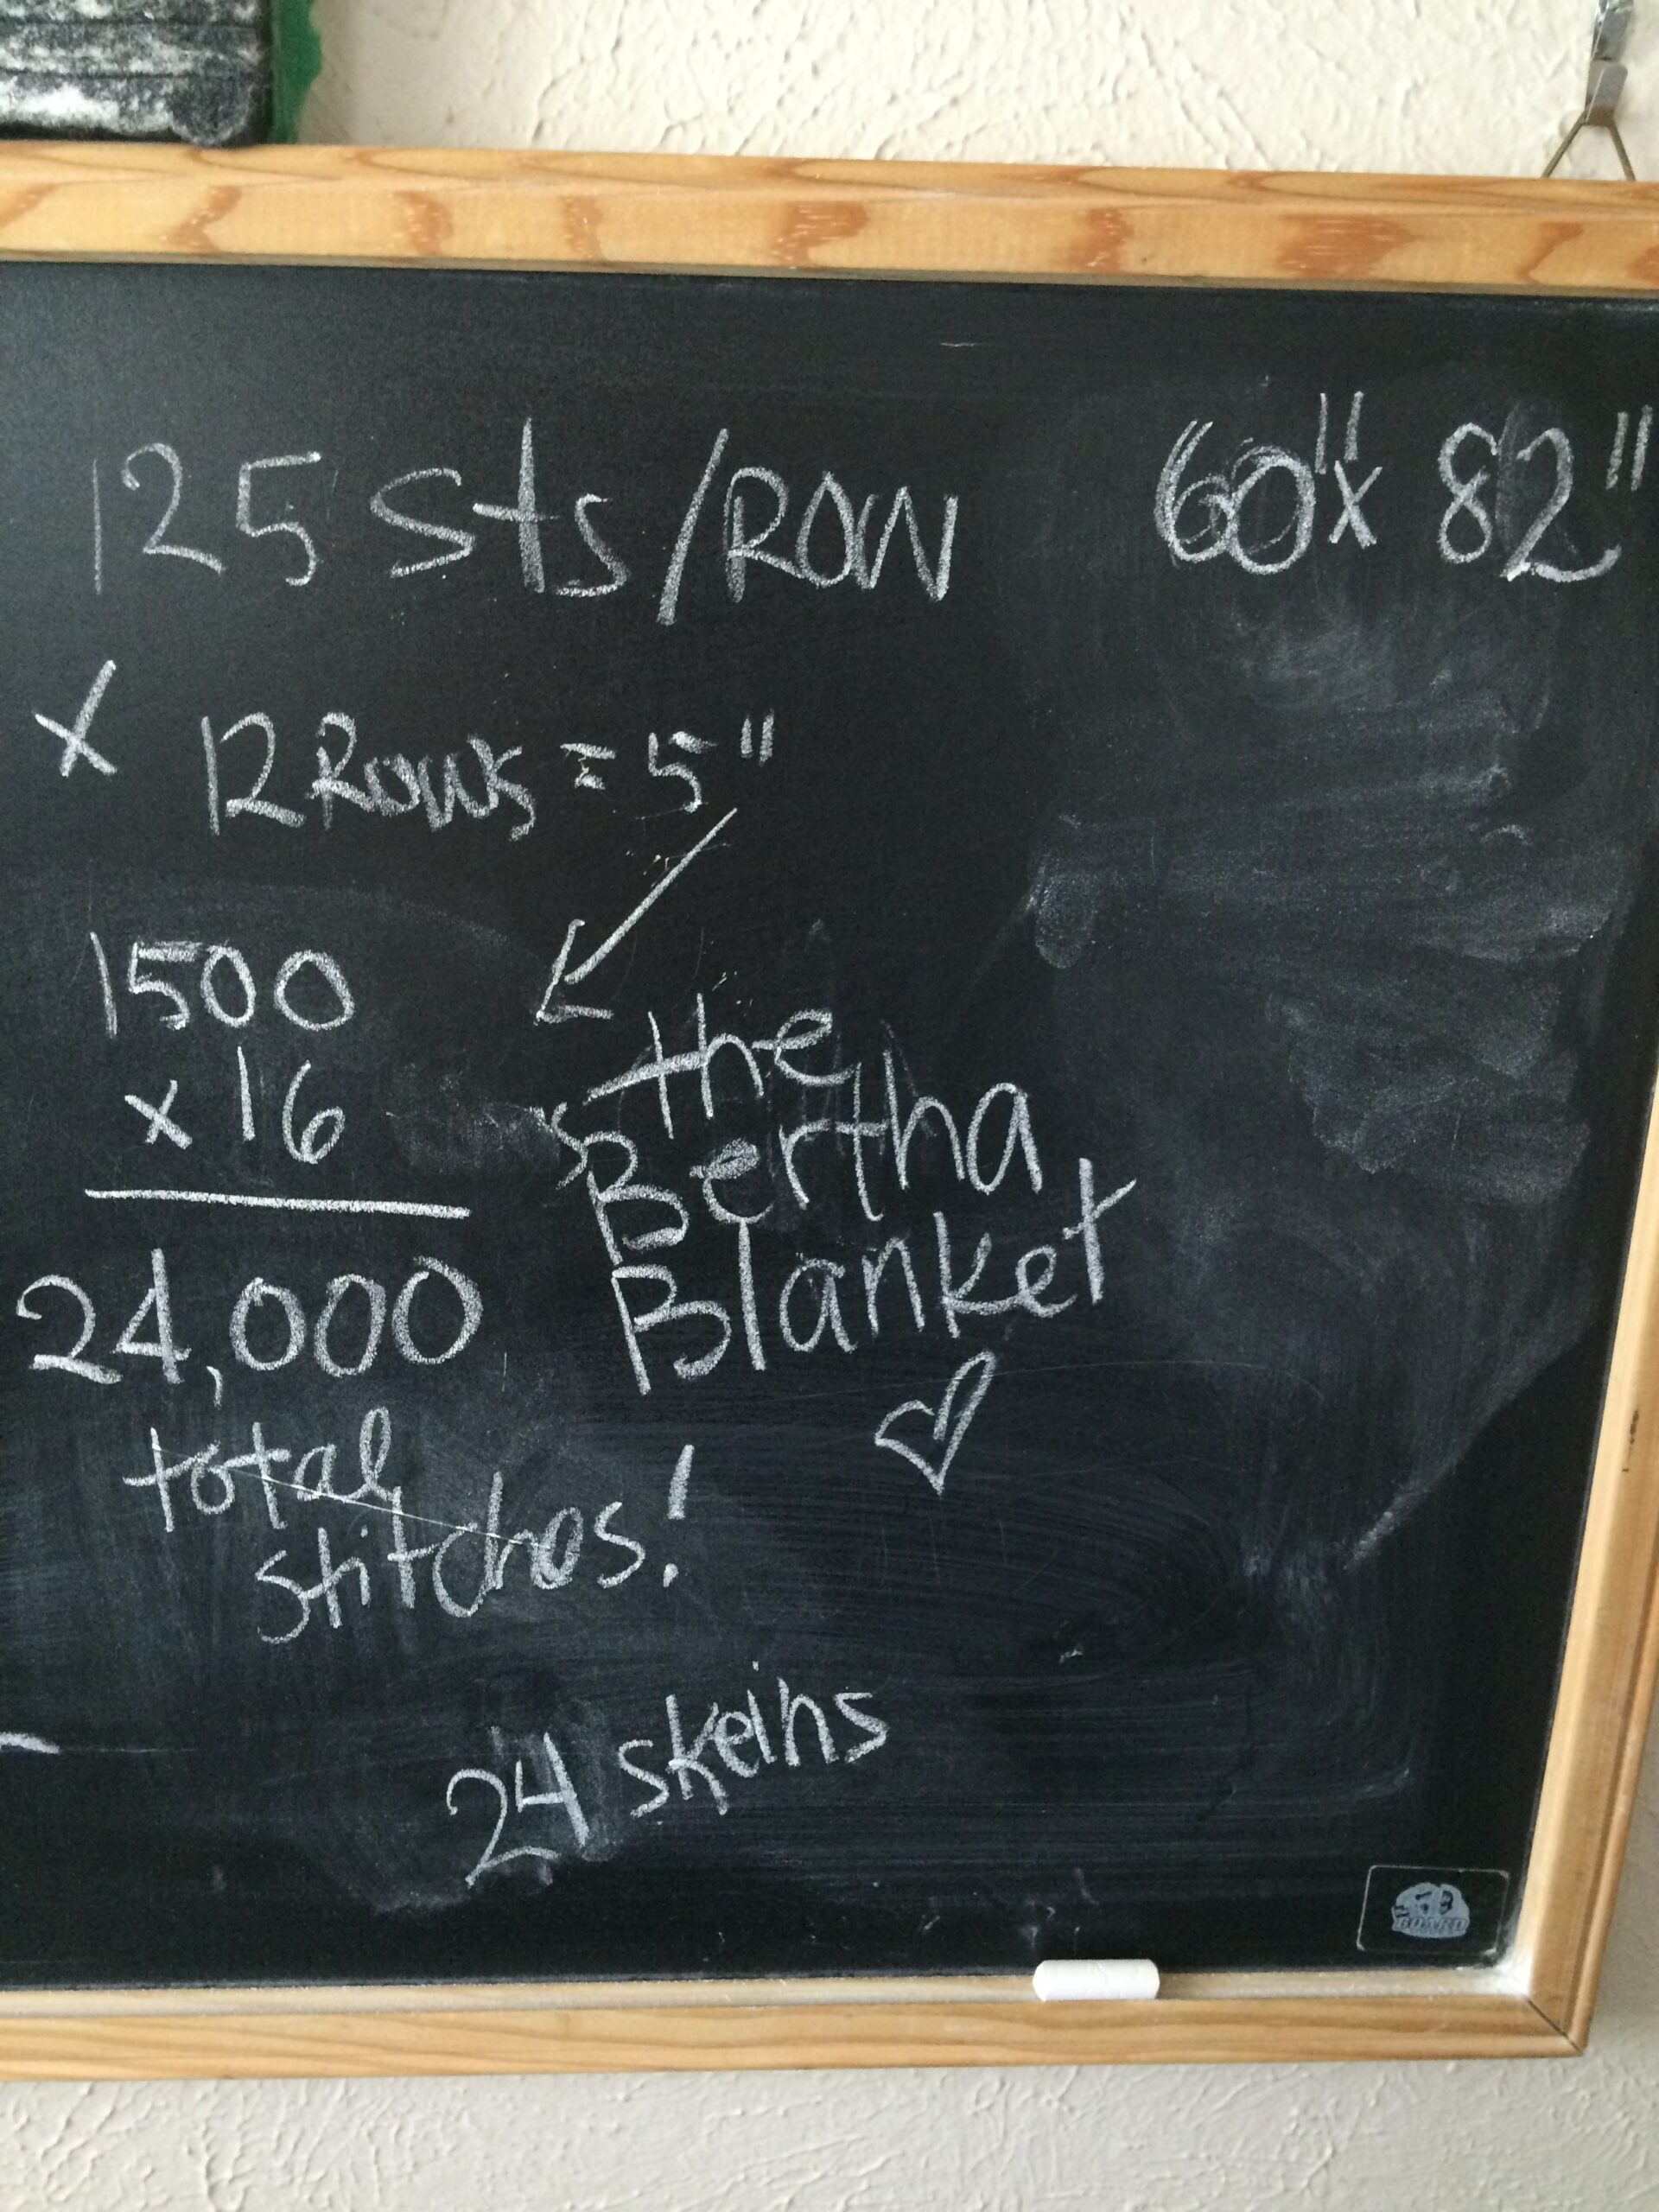 125 sts/ROW
60" x 82"
x 12 Rows = 5"
1500
x 16
24,000
total
stitches!
the
Bertha
Blanket
24 skeins
BOARD